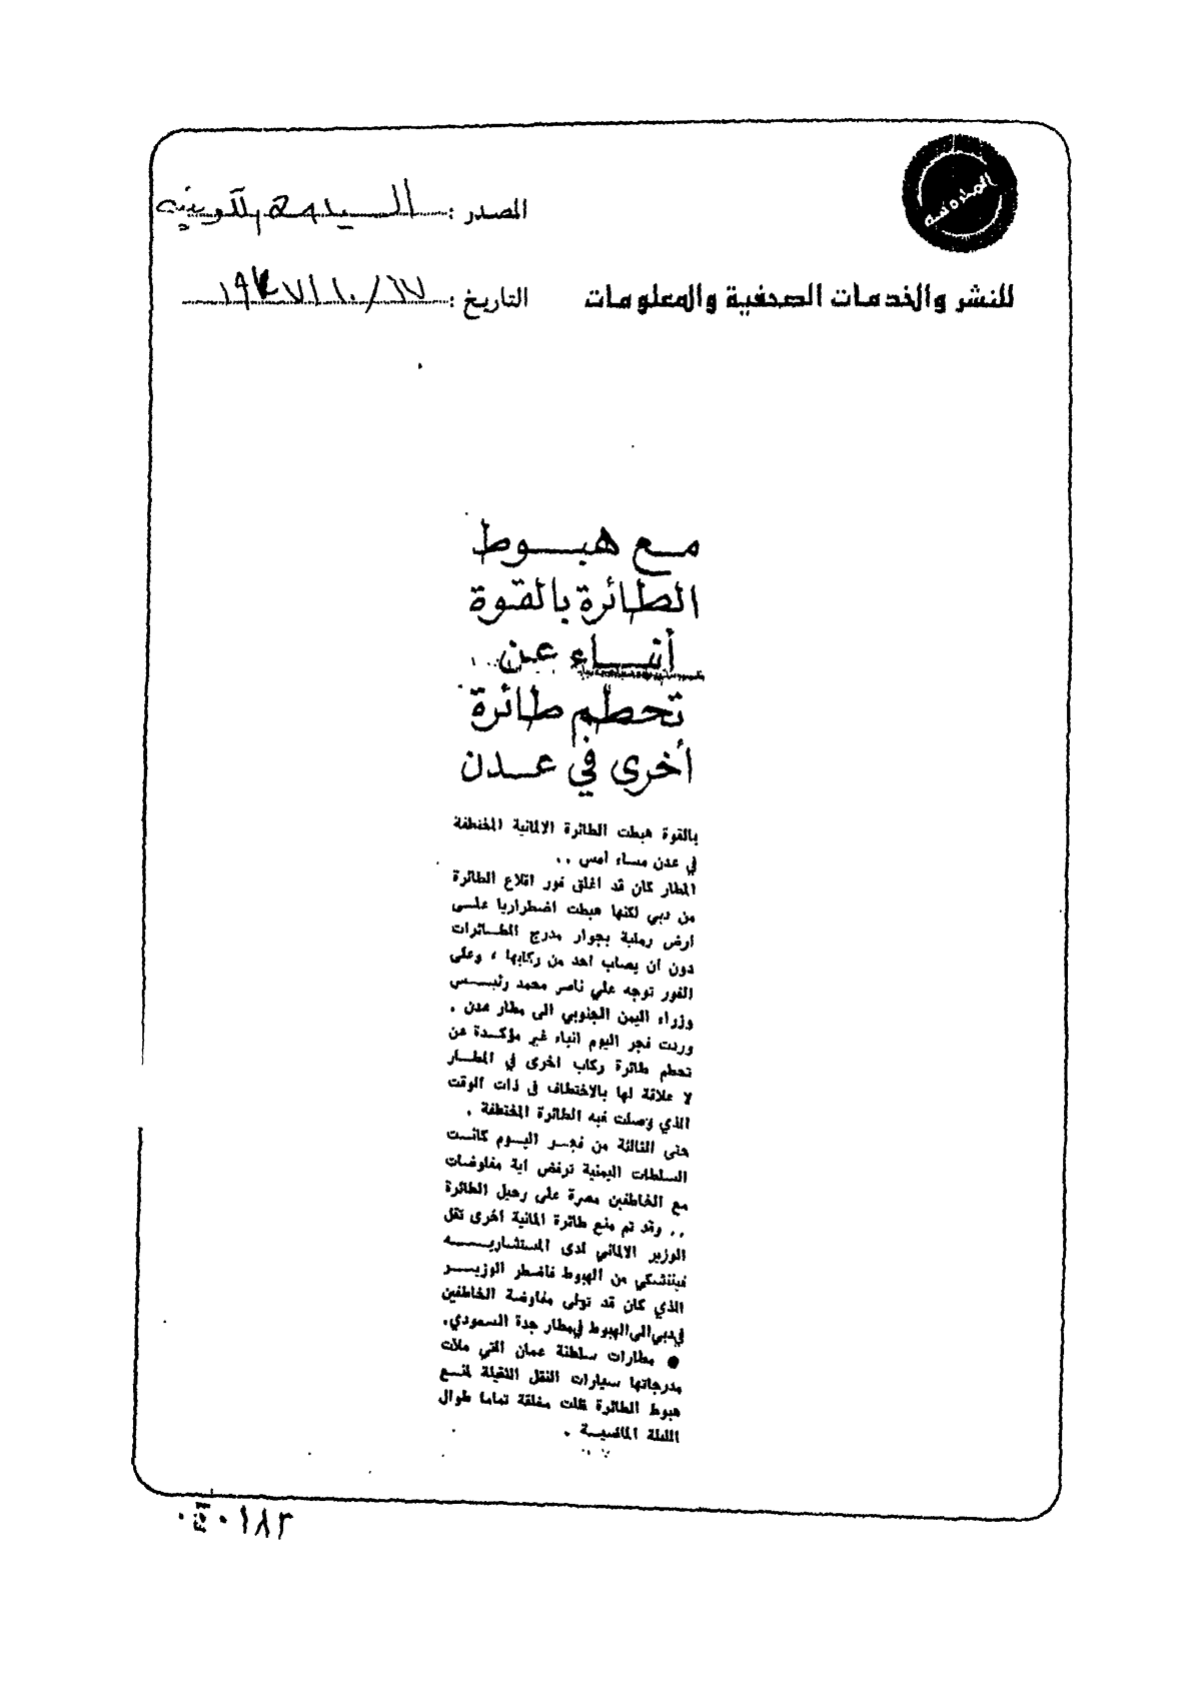 المصدر : السياسة الكويتية
للنشر والخدمات الصحفية والمعلومات
التاريخ : ١٩٧٧/١٠/١٧
مع هبوط
الطائرة بالقوة
أنباء عن
تحطم طائرة
أخرى في عدن
بالقوة هبطت الطائرة الالمانية المختطفة
في عدن مساء امس ..
المطار كان قد اغلق فور اقلاع الطائرة
من دبي لكنها هبطت اضطراريا على
ارض رملية بجوار مدرج الطائرات
دون ان يصاب احد من ركابها ، وعلى
الفور توجه علي ناصر محمد رئيس
وزراء اليمن الجنوبي الى مطار عدن .
وردت فجر اليوم انباء غير مؤكدة عن
تحطم طائرة ركاب اخرى في المطار
لا علاقة لها بالاختطاف في ذات الوقت
الذي وصلت فيه الطائرة المختطفة .
حتى الثالثة من فجر اليوم كانت
السلطات اليمنية ترفض اية مفاوضات
مع الخاطفين مصرة على رحيل الطائرة
.. وقد تم منع طائرة المانية اخرى تقل
الوزير الالماني لدى المستشاريه
فيننشكي من الهبوط فاضطر الوزير
الذي كان قد تولى مفاوضة الخاطفين
في دبي الى الهبوط في مطار جدة السعودي.
● مطارات سلطنة عمان التي ملات
مدرجاتها سيارات النقل الثقيلة لمنع
هبوط الطائرة ظلت مغلقة تماما طوال
الليلة الماضية .